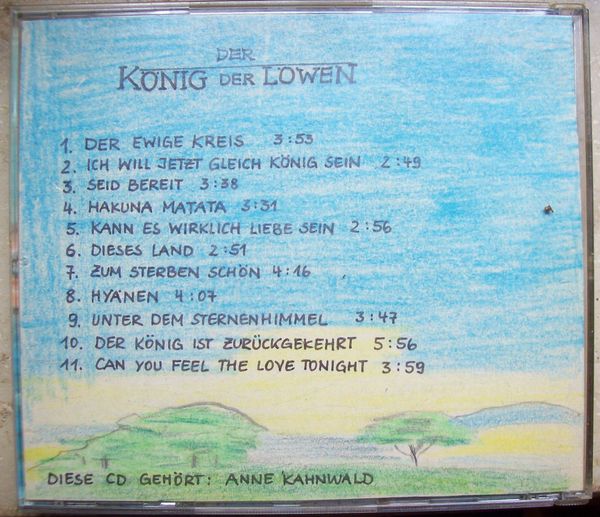 DER
KÖNIG DER LÖWEN
1. DER EWIGE KREIS 3:53
2. ICH WILL JETZT GLEICH KÖNIG SEIN 2:49
3. SEID BEREIT 3:38
4. HAKUNA MATATA 3:31
5. KANN ES WIRKLICH LIEBE SEIN 2:56
6. DIESES LAND 2:51
7. ZUM STERBEN SCHÖN 4:16
8. HYÄNEN 4:07
9. UNTER DEM STERNENHIMMEL 3:47
10. DER KÖNIG IST ZURÜCKGEKEHRT 5:56
11. CAN YOU FEEL THE LOVE TONIGHT 3:59
DIESE CD GEHÖRT: ANNE KAHNWALD